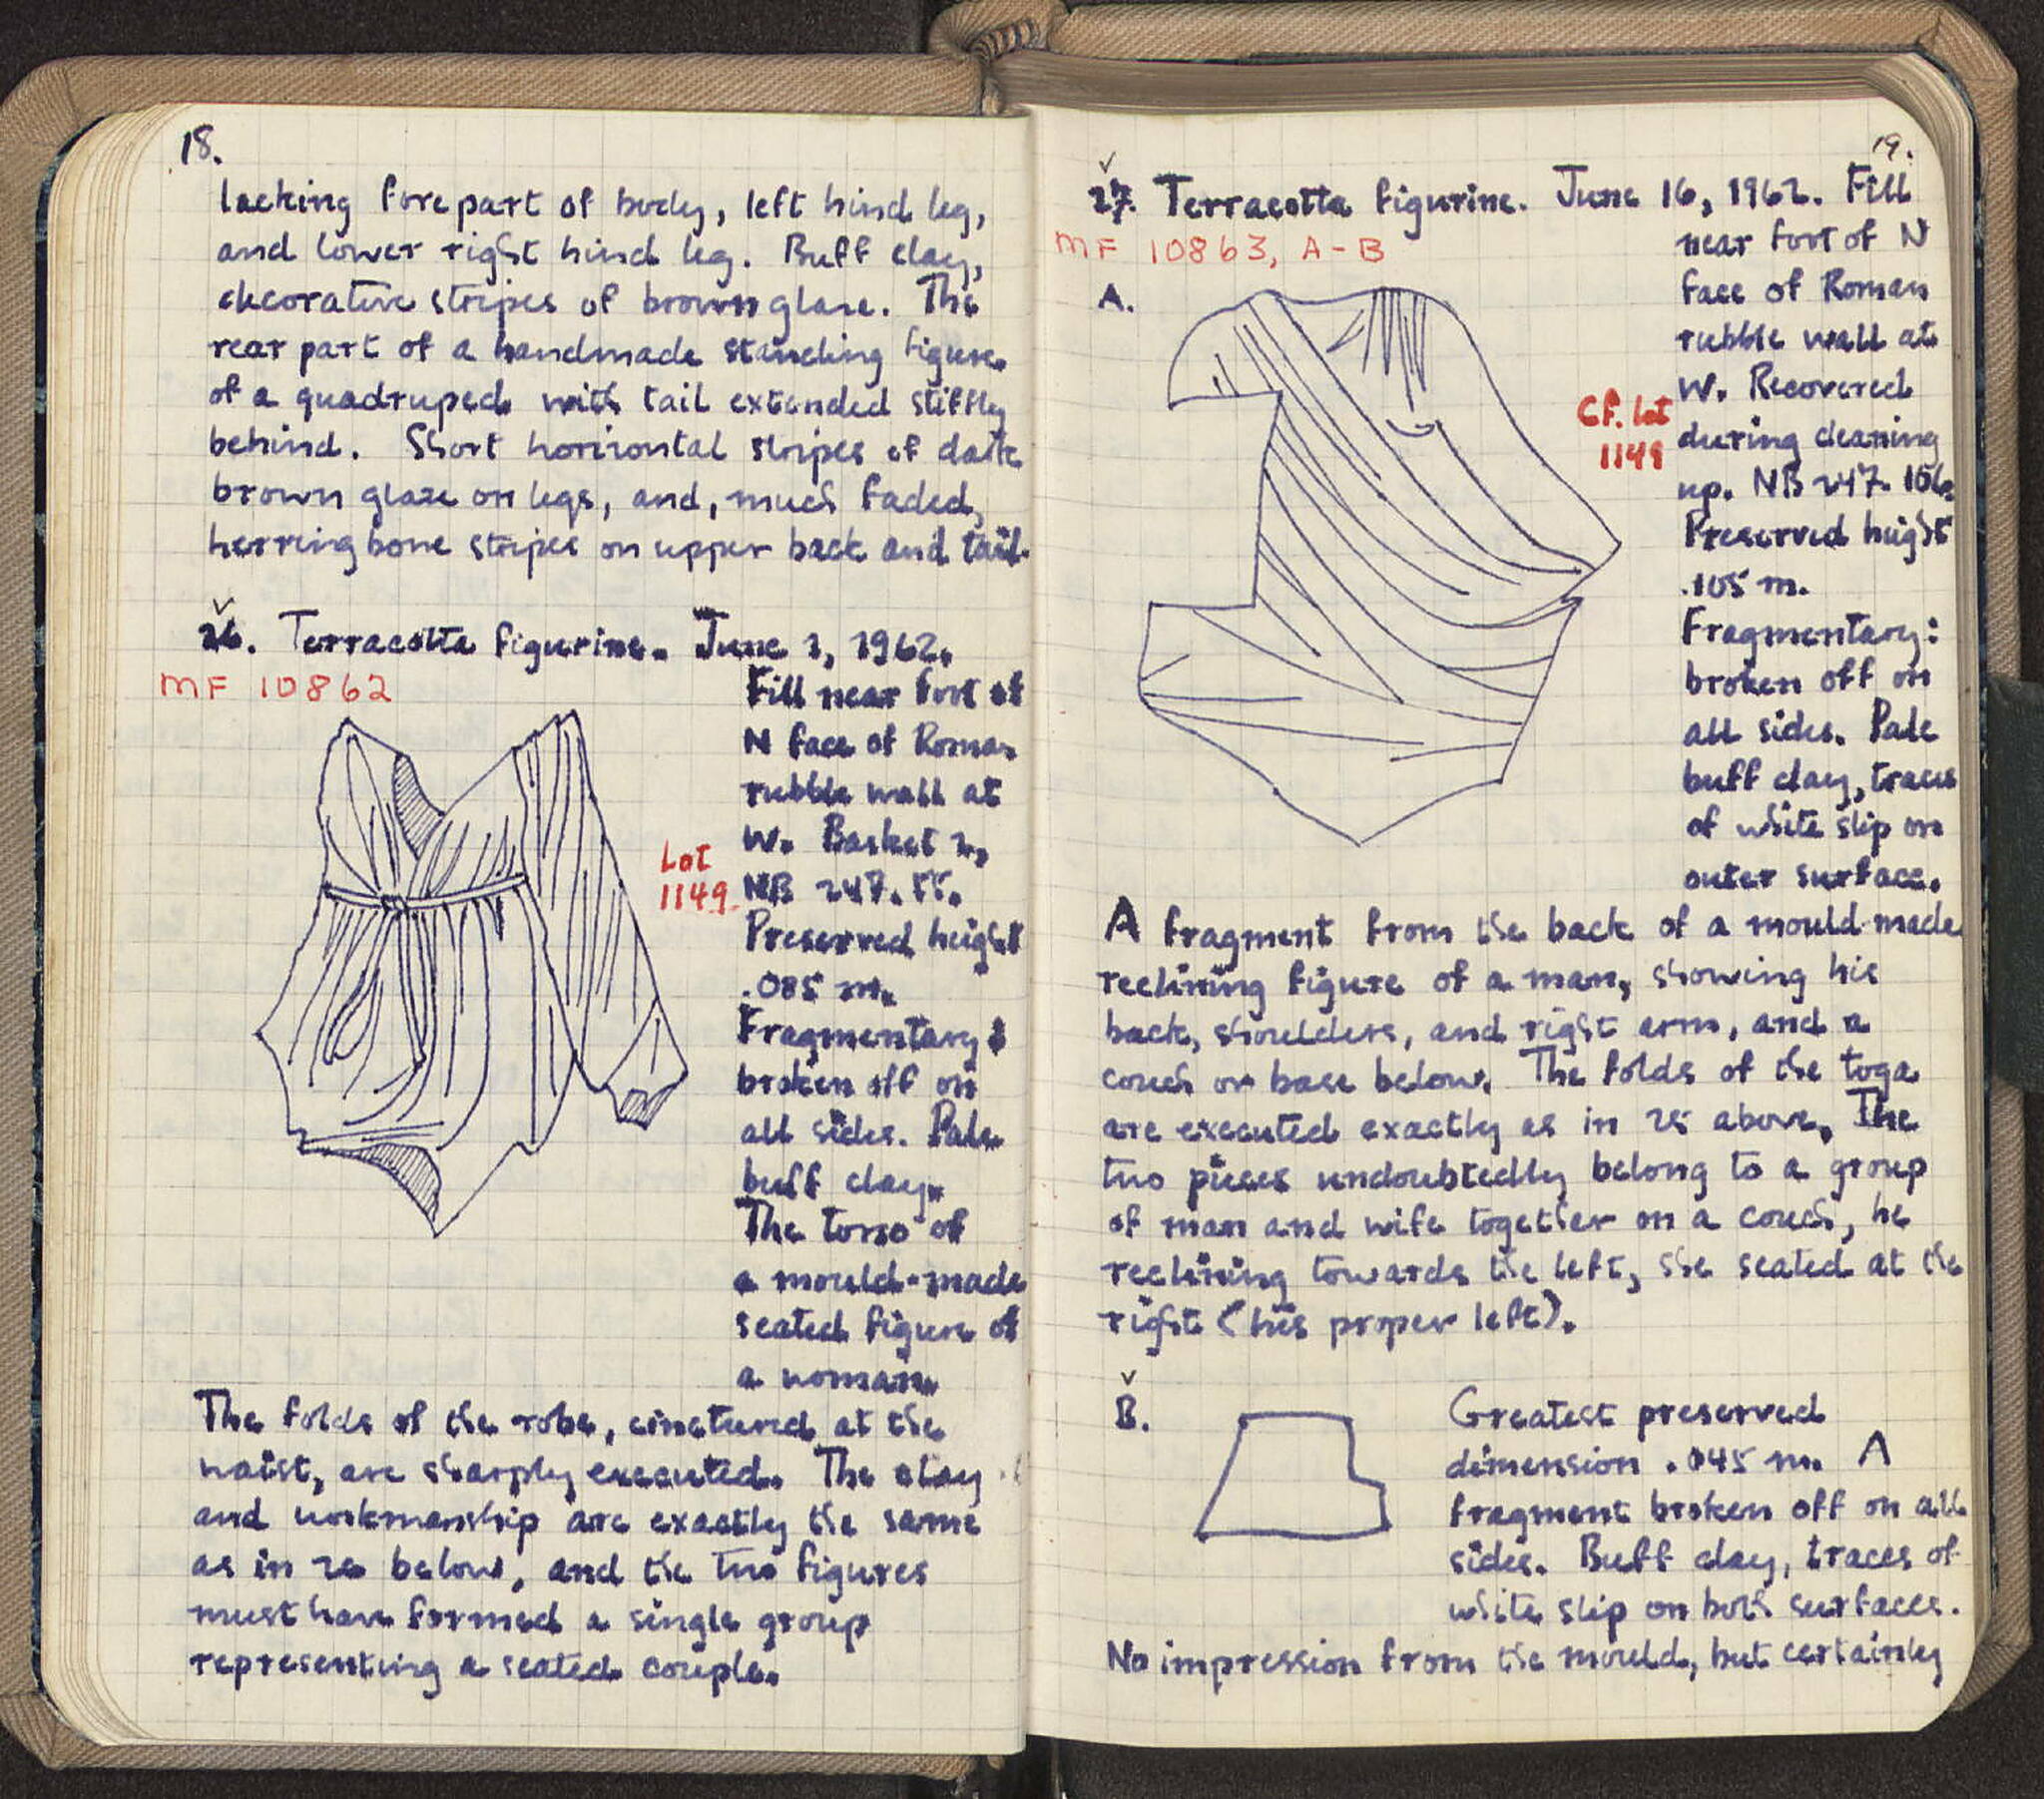 18.
lacking forepart of body, left hind leg,
and lower right hind leg. Buff clay,
decorative stripes of brown glaze. The
rear part of a handmade standing figure
of a quadruped with tail extended stiffly
behind. Short horizontal stripes of dark
brown glaze on legs, and, much faded,
herringbone stripes on upper back and tail.
26. Terracotta figurine. June 1, 1962.
MF 10862
Fill near foot of
N face of Roman
rubble wall at
W. Basket 2,
Lot
1149
NB 247. 55.
Preserved height
.085 m.
Fragmentary:
broken off on
all sides. Pale
buff clay.
The torso of
a mould-made
seated figure of
a woman.
The folds of the robe, cinctured at the
waist, are sharply executed. The clay
and workmanship are exactly the same
as in 26 below, and the two figures
must have formed a single group
representing a seated couple.
19.
27. Terracotta figurine. June 16, 1962. Fill
MF 10863, A-B
near foot of N
face of Roman
rubble wall at
W. Recovered
during cleaning
up. NB 247.
Cf. lot
1149
Preserved height
.105 m.
Fragmentary:
broken off on
all sides. Pale
buff clay, traces
of white slip on
outer surface.
A.
A fragment from the back of a mould-made
reclining figure of a man, showing his
back, shoulders, and right arm, and a
couch or base below. The folds of the toga
are executed exactly as in 25 above. The
two pieces undoubtedly belong to a group
of man and wife together on a couch, he
reclining towards the left, she seated at the
right (his proper left).
B.
Greatest preserved
dimension .045 m. A
fragment broken off on all
sides. Buff clay, traces of
white slip on both surfaces.
No impression from the mould, but certainly